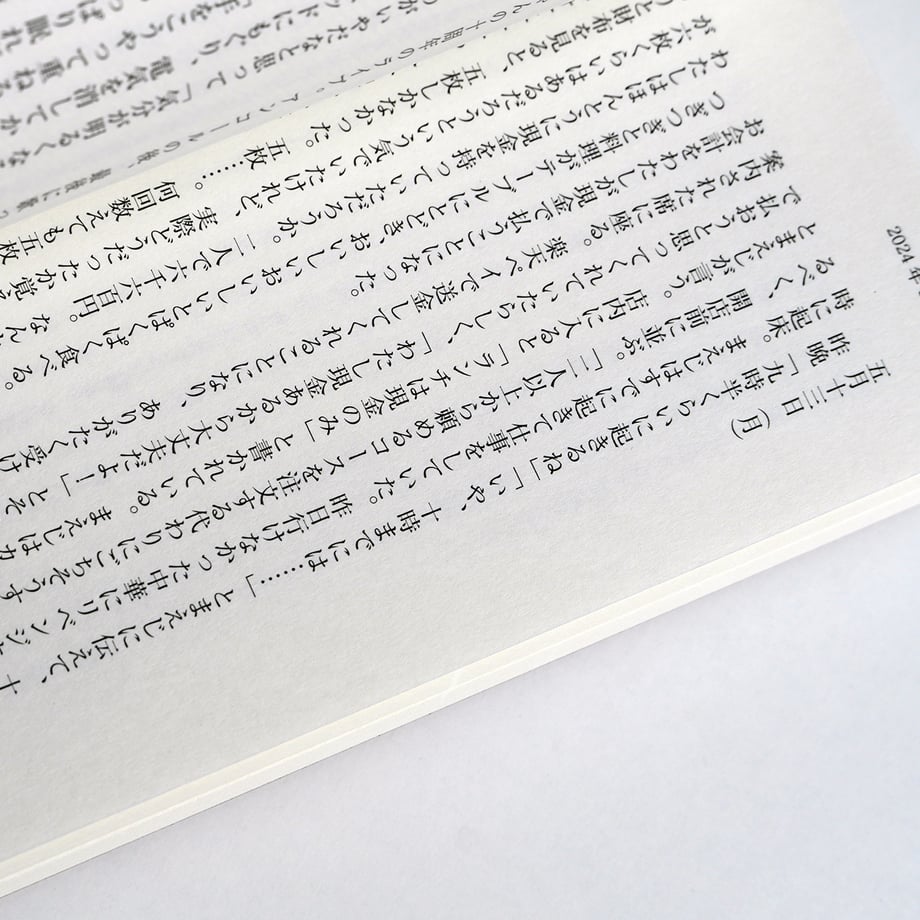 2024 年
五月十三日(月)
昨晩「九時半くらいに起きるね」「いや、十時までには……」とまえじに伝えて、十
時に起床。まえじはすでに起きて仕事をしていた。昨日行けなかった中華にリベンジす
るべく、開店前に並ぶ。「二人以上から頼めるコースを注文する代わりにごちそうす
とまえじが言う。店内に入ると「ランチは現金のみ」と書かれている。まえじはカ
で払おうと思ってくれていたらしく、「わたし現金あるから大丈夫だよ！」とそ
案内された席に座る。楽天ペイで送金してくれることになり、ありがたく受け
お会計をわたしが現金で払うことになった。
つぎつぎと料理がテーブルにとどき、おいしいおいしいとぱくぱく食べる。
わたしはほんとうに現金を持っていただろうか。二人で六千六百円。なん
が六枚くらいはあるだろうという気でいたけれど、実際どうだったか覚え
うと財布を見ると、五枚しかなかった。五枚……。何回数えても五枚
んの十周年のライブ。アンコールの後、最後に
がいやだなと思って「気分が明るくな
ッドにもぐり、電気を消してか
「手をこうやって重ねる
っぱり眠れ